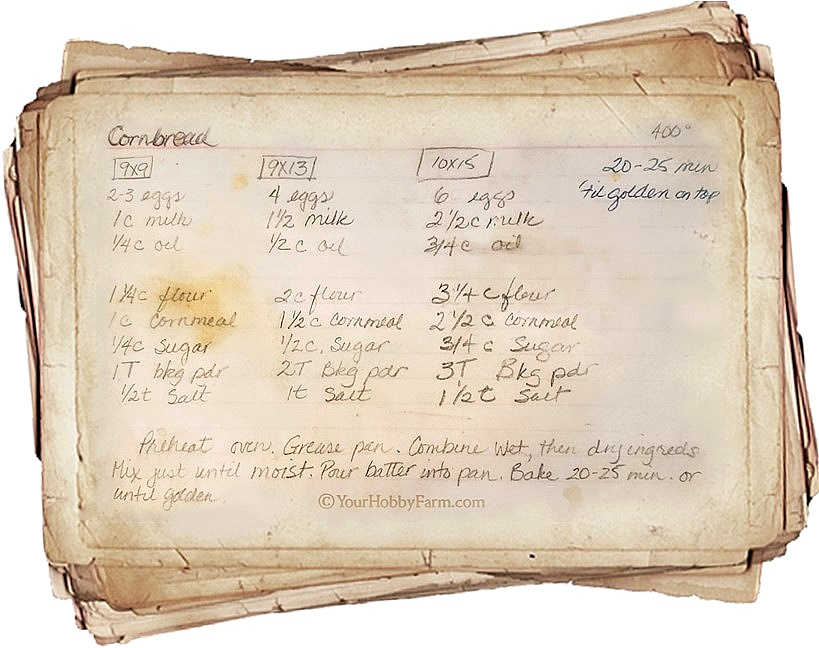 Cornbread 400°
9x9 9x13 10x15 20-25 min
2-3 eggs 4 eggs 6 eggs 'til golden on top
1c milk 1 1/2 milk 2 1/2 c milk
1/4 c oil 1/2 c oil 3/4 c oil
1 1/4 c flour 2 c flour 3 1/4 c flour
1c Cornmeal 1 1/2 c Cornmeal 2 1/2 c Cornmeal
1/4c Sugar 1/2c. Sugar 3/4 c Sugar
1T bkg pdr 2T Bkg pdr 3T Bkg pdr
1/2t Salt 1t Salt 1 1/2t Salt
Preheat oven. Grease pan. Combine Wet, then dry ingreds.
Mix just until moist. Pour batter into pan. Bake 20-25 min. or
until golden.
© YourHobbyFarm.com